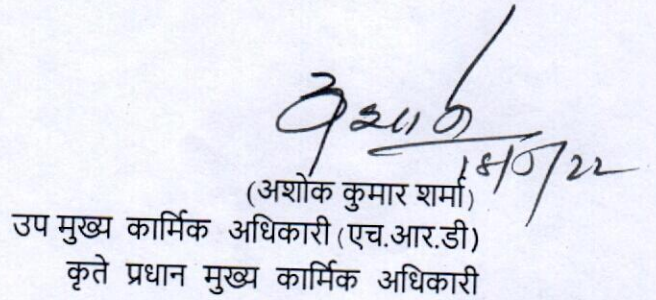 अशोक
(अशोक कुमार शर्मा)
उप मुख्य कार्मिक अधिकारी (एच.आर.डी)
कृते प्रधान मुख्य कार्मिक अधिकारी